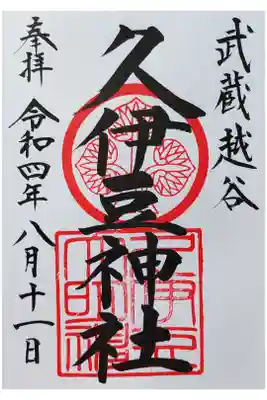 武蔵越谷
久伊豆神社
奉拝
令和四年
八月十一日